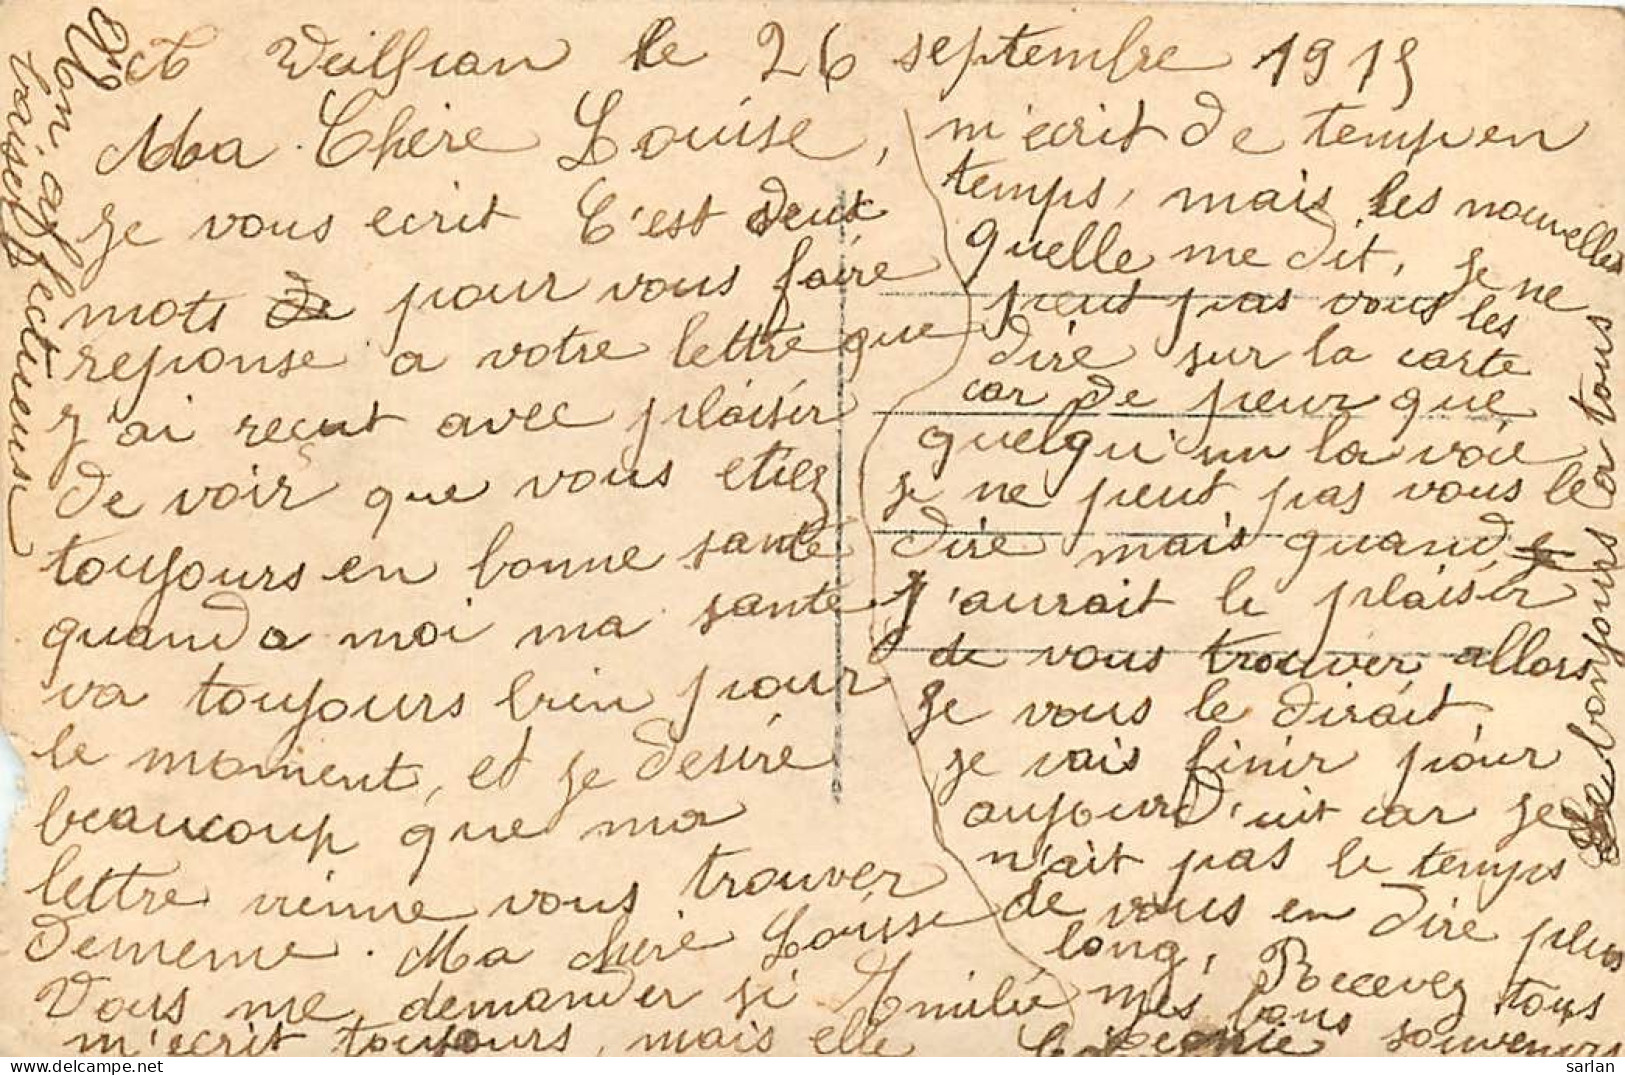 le 26 septembre 1915
Ma Chère Louise,
je vous ecrit C'est deux
mots de pour vous faire
reponse a votre lettre que
j'ai reçut avec plaisir
de voir que vous etiez
toujours en bonne santé
quand a moi ma santé
va toujours bien pour
le moment, et je desire
beaucoup que ma
lettre vienne vous trouver
dememe. Ma chere Louise
Vous me demander si Emilie
m'ecrit toujours, mais elle
m'ecrit de temp en
temps, mais les nouvelles
quelle me dit, je ne
peut pas vous les
dire sur la carte
car de peur que
quelqu'un la voie
je ne peut pas vous le
dire mais quand je
j'aurait le plaisir
de vous trouver allors
je vous le dirait,
je vais finir pour
aujourd'uit car je
n'ait pas le temps
de vous en dire plus
long, Recevez tous
mes bons souvenirs
Le bonjours a tous
Mon affectueuse
baiser